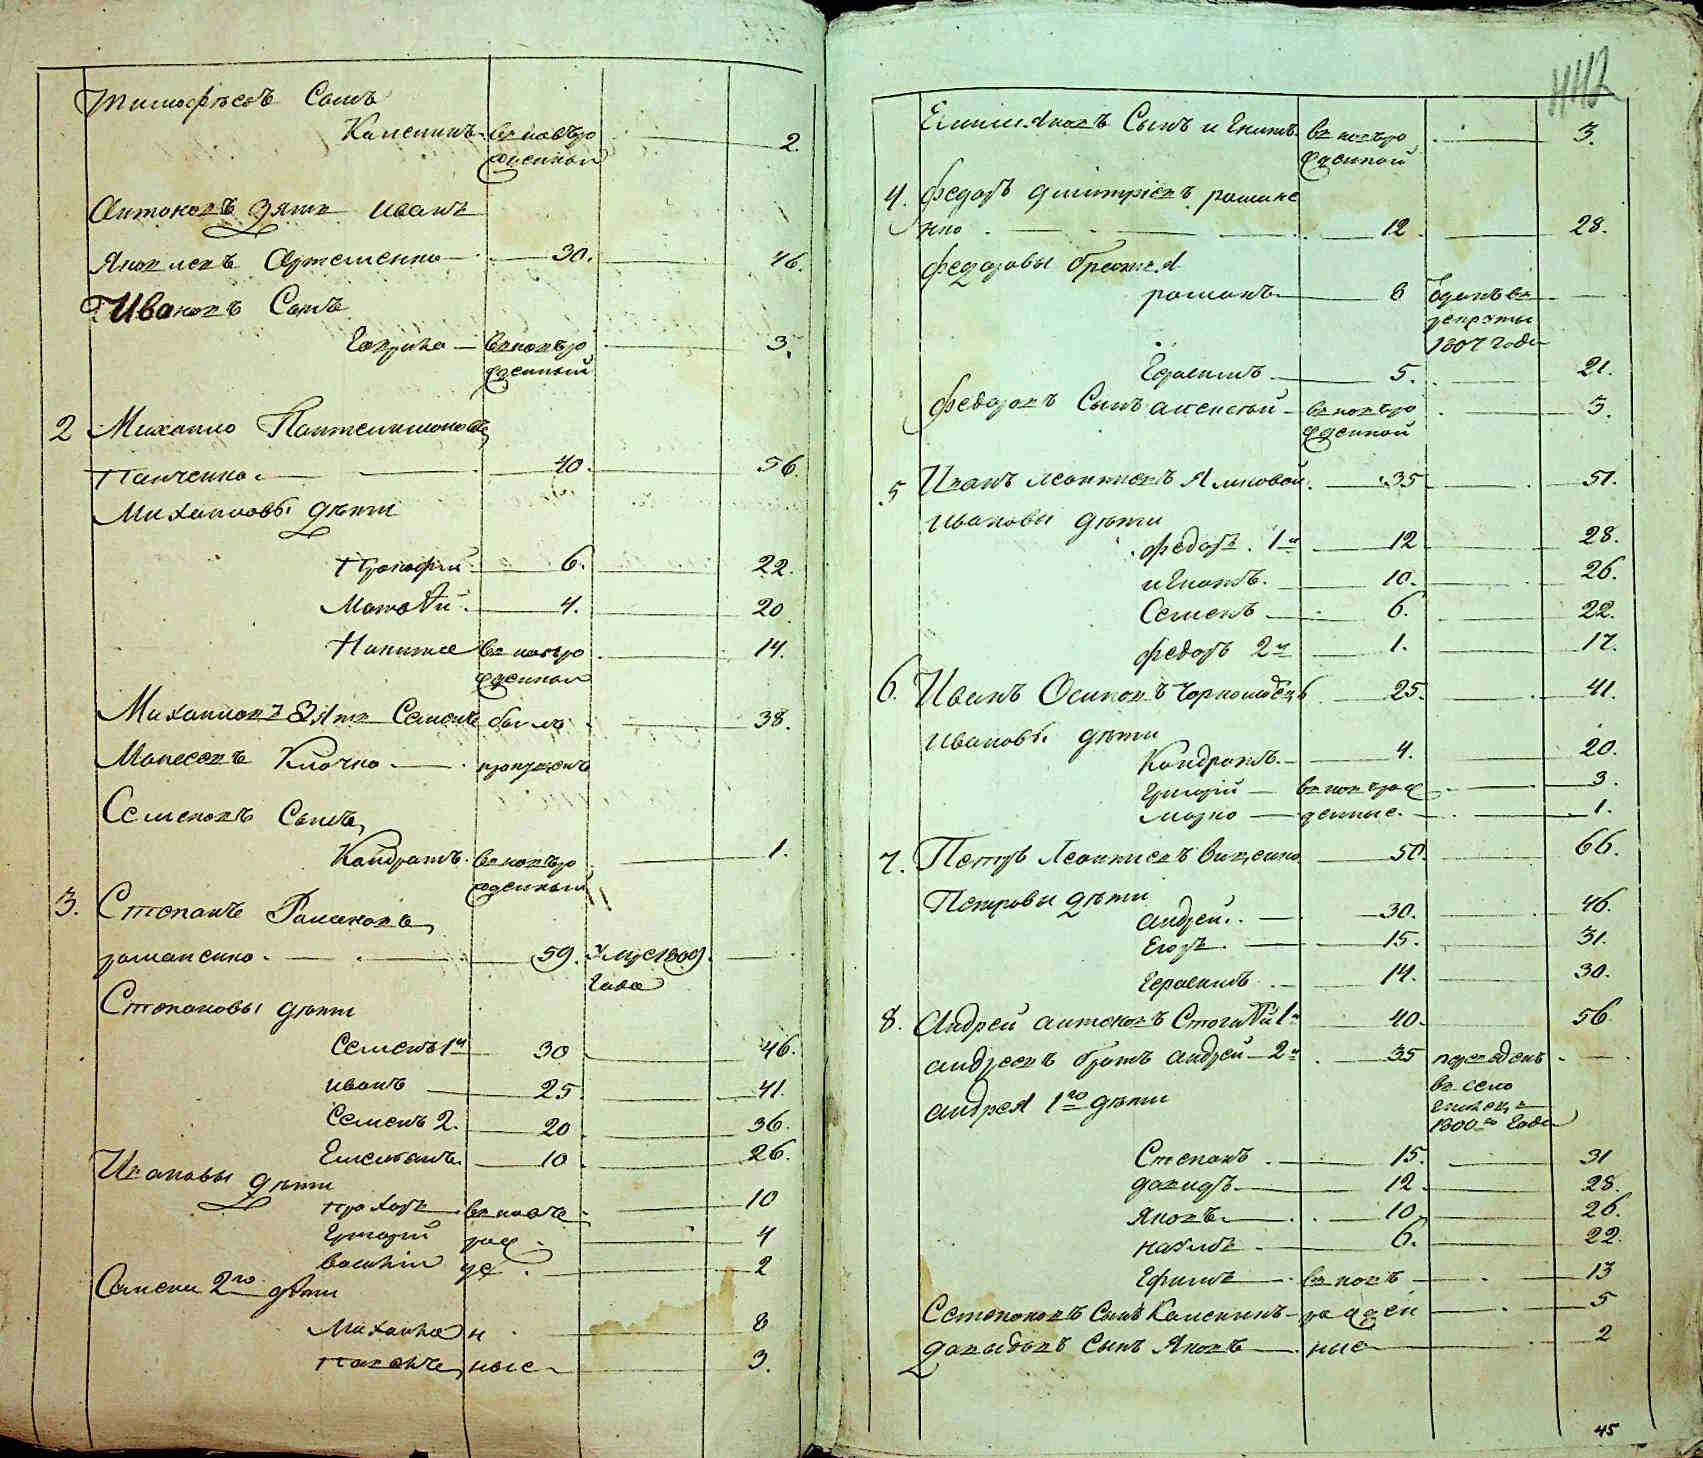 Тимофѣевъ Сынъ
Калениикъ вновьро 2.
жденной
Антоновъ Зять Иванъ
Яковлевъ Артеменко 30. 46.
Ивановъ Сынъ
Гаврило вновьро 3.
жденный
2 Михайло Пантелимоновъ
Панченко 40. 56.
Михайловы дѣти
Прокофій 6. 22.
Матвѣй 4. 20
Никита вновьро 14.
жденной
Михайловъ Зять Семенъ былъ 38.
Моисеевъ Клочко пропущенъ
Семеновъ Сынъ
Кондратъ вновьро 1.
жденный
3. Степанъ Романовъ
романенко 59. Умре 1809
Года
Степановы дѣти
Семенъ 1й 30 46.
иванъ 25 41.
Семенъ 2. 20 36.
Емельянъ 10 26.
Ивановы дѣти
прохоръ вновь 10
Григорій рож 4
василій де 2
Семена 2го дѣти
Михайла н 8
ные 3.
442
Емельяновъ Сынъ Игнатъ вновьро 3.
жденной
4. федоръ дмитріевъ романе
нко 12 28.
федоровы братья
романъ 6 отданъ въ
рекруты
1807 Года
Герасимъ 5. 21.
федоровъ Сынъ алексѣй вновьро 3.
жденной
5 Иванъ леонтиевъ Ялововой 35 51.
ивановы дѣти
федоръ 1й 12 28.
игнатъ 10. 26.
Семенъ 6. 22.
федоръ 2й 1. 17.
6. Иванъ Осиповъ 25. 41.
ивановы дѣти
Кондратъ 4. 20.
Григорій вновьрож 3.
марко денные 1.
7. Петръ Леонтиевъ Виценко 50. 66.
Петровы дѣти
андрей 30. 46.
Егоръ 15. 31.
Герасимъ 14. 30.
8. Андрей антоновъ Стогній 1й 40. 56
андреевъ братъ андрей 2й 35 переведенъ
въ село
1800го Года
андрея 1го дѣти
Степанъ 15. 31
давидъ 12 28.
Яковъ 10 26.
наумъ 6. 22.
Ефимъ вновь 13
Степановъ Сынъ Калениикъ рожден 5
давыдовъ Сынъ Яковъ ные 2
45